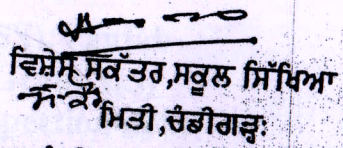 ਵਿਸ਼ੇਸ਼ ਸਕੱਤਰ,ਸਕੂਲ ਸਿੱਖਿਆ
ਮਿਤੀ,ਚੰਡੀਗੜ੍ਹ: